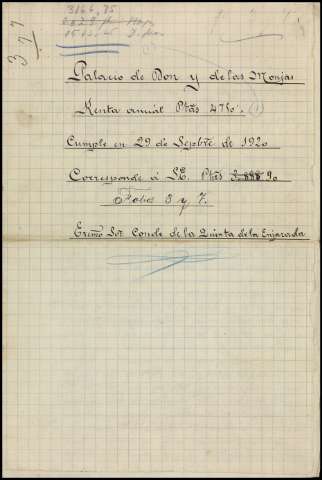 3166,85
377
Palacio de Don y de las Monjas
Renta anual Ptas 4750. (1)
Cumple en 29 de Sepbre de 1920
Corresponde á S.E. Ptas 90
Folios 3 y 7.
Excmo Sor Conde de la Quinta de la Enjarada